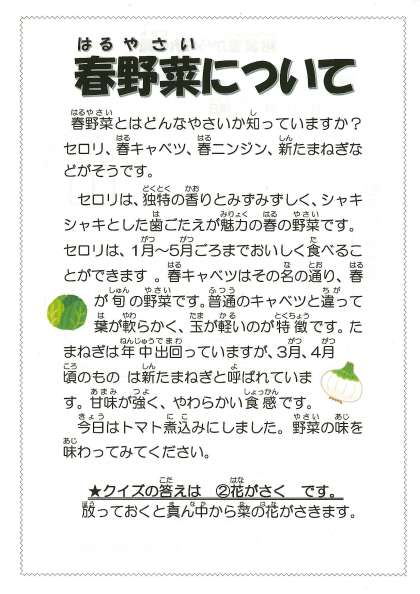 はるやさい
春野菜について
春野菜とはどんなやさいか知っていますか？
セロリ、春キャベツ、春ニンジン、新たまねぎな
どがそうです。
セロリは、独特の香りとみずみずしく、シャキ
シャキとした歯ごたえが魅力の春の野菜です。
セロリは、1月～5月ごろまでおいしく食べるこ
とができます 。春キャベツはその名の通り、春
が旬の野菜です。普通のキャベツと違って
葉が軟らかく、玉が軽いのが特徴です。た
まねぎは年中出回っていますが、3月、4月
頃のもの は新たまねぎと呼ばれていま
す。甘味が強く、やわらかい食感です。
今日はトマト煮込みにしました。野菜の味を
味わってみてください。
★クイズの答えは ②花がさく です。
放っておくと真ん中から菜の花がさきます。